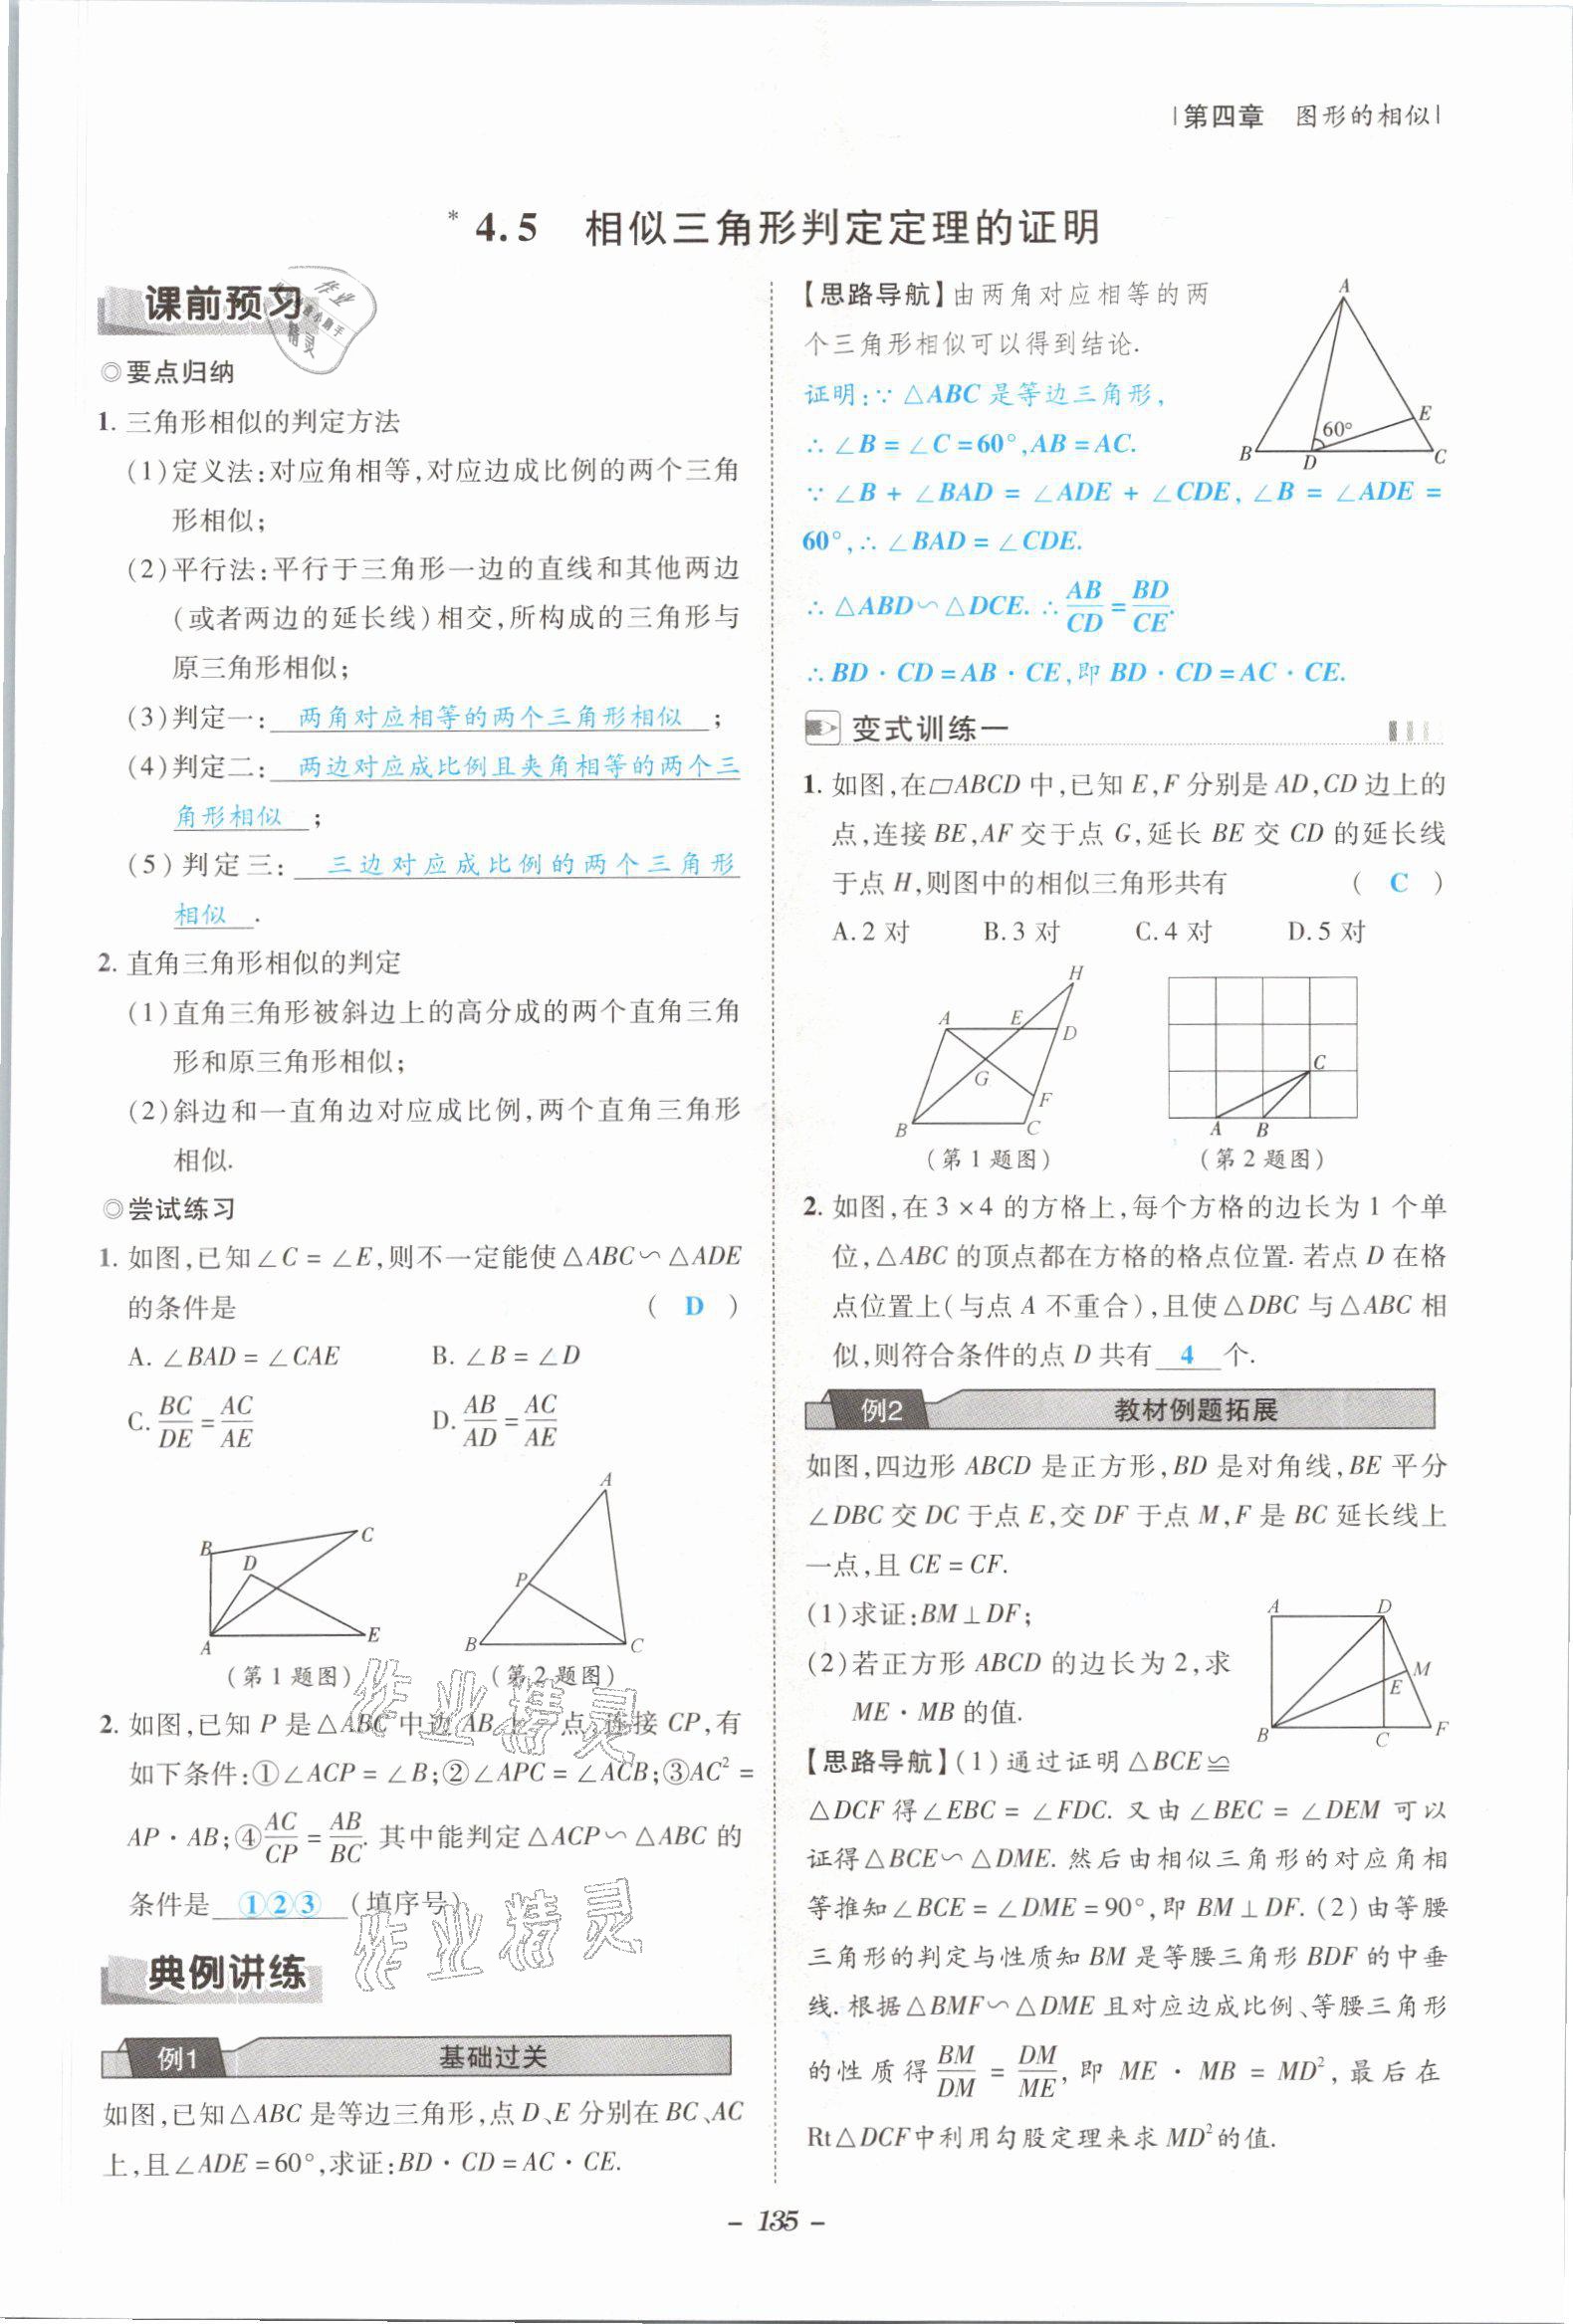 |第四章 图形的相似|
*4.5 相似三角形判定定理的证明
课前预习
◎要点归纳
1. 三角形相似的判定方法
(1)定义法:对应角相等,对应边成比例的两个三角
形相似;
(2)平行法:平行于三角形一边的直线和其他两边
(或者两边的延长线)相交,所构成的三角形与
原三角形相似;
(3)判定一: 两角对应相等的两个三角形相似 ;
(4)判定二: 两边对应成比例且夹角相等的两个三
角形相似 ;
(5)判定三: 三边对应成比例的两个三角形
相似 .
2. 直角三角形相似的判定
(1)直角三角形被斜边上的高分成的两个直角三角
形和原三角形相似;
(2)斜边和一直角边对应成比例,两个直角三角形
相似.
◎尝试练习
1. 如图,已知∠C=∠E,则不一定能使△ABC∽△ADE
的条件是 ( D )
A. ∠BAD=∠CAE B. ∠B=∠D
C. BC/DE=AC/AE D. AB/AD=AC/AE
B D C A E
A P B C
(第1题图) (第2题图)
2. 如图,已知 P 是△ABC 中边 AB 上 点,连接 CP,有
如下条件:①∠ACP=∠B;②∠APC=∠ACB;③AC²=
AP·AB;④AC/CP=AB/BC. 其中能判定△ACP∽△ABC 的
条件是 ①②③ (填序号)
典例讲练
例1 基础过关
如图,已知△ABC 是等边三角形,点 D、E 分别在 BC、AC
上,且∠ADE=60°,求证:BD·CD=AC·CE.
【思路导航】由两角对应相等的两
个三角形相似可以得到结论.
证明:∵△ABC 是等边三角形,
∴∠B=∠C=60°,AB=AC.
∵∠B+∠BAD=∠ADE+∠CDE,∠B=∠ADE=
60°,∴∠BAD=∠CDE.
∴△ABD∽△DCE. ∴AB/CD=BD/CE.
∴BD·CD=AB·CE,即 BD·CD=AC·CE.
A E 60° B D C
变式训练一
1. 如图,在▱ABCD 中,已知 E,F 分别是 AD,CD 边上的
点,连接 BE,AF 交于点 G,延长 BE 交 CD 的延长线
于点 H,则图中的相似三角形共有 ( C )
A.2 对 B.3 对 C.4 对 D.5 对
H A E D G F B C
C A B
(第1题图) (第2题图)
2. 如图,在 3×4 的方格上,每个方格的边长为 1 个单
位,△ABC 的顶点都在方格的格点位置. 若点 D 在格
点位置上(与点 A 不重合),且使△DBC 与△ABC 相
似,则符合条件的点 D 共有 4 个.
例2 教材例题拓展
如图,四边形 ABCD 是正方形,BD 是对角线,BE 平分
∠DBC 交 DC 于点 E,交 DF 于点 M,F 是 BC 延长线上
一点,且 CE=CF.
(1)求证:BM⊥DF;
(2)若正方形 ABCD 的边长为 2,求
ME·MB 的值.
A D M E B C F
【思路导航】(1)通过证明△BCE≌
△DCF 得∠EBC=∠FDC. 又由∠BEC=∠DEM 可以
证得△BCE∽△DME. 然后由相似三角形的对应角相
等推知∠BCE=∠DME=90°,即 BM⊥DF. (2)由等腰
三角形的判定与性质知 BM 是等腰三角形 BDF 的中垂
线. 根据△BMF∽△DME 且对应边成比例、等腰三角形
的性质得 BM/DM=DM/ME,即 ME·MB=MD²,最后在
Rt△DCF 中利用勾股定理来求 MD²的值.
作业精灵
作业精灵
- 135 -